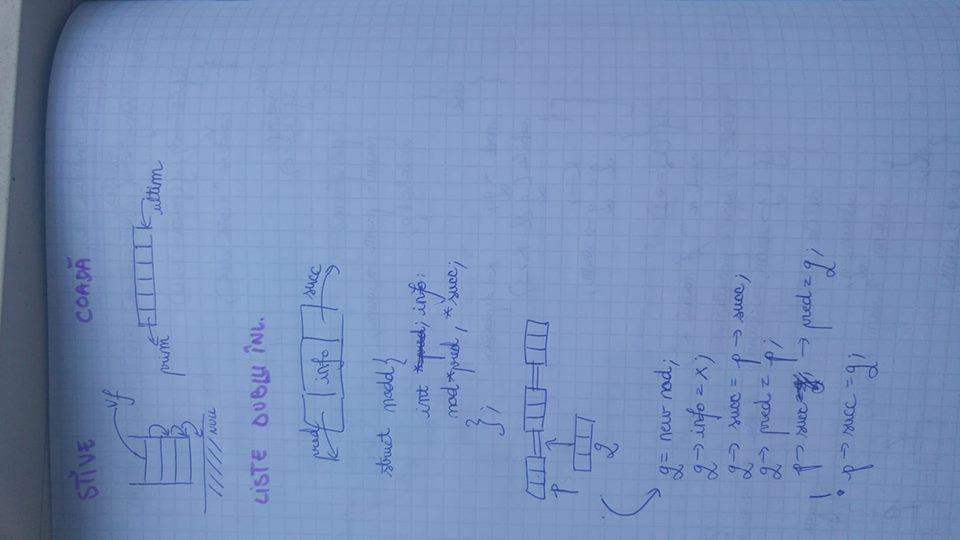 STIVE COADĂ
vf
prim
ultim
NULL
LISTE DUBLU ÎNL.
pred info succ
struct nodd{
int info;
nod *pred, *succ;
};
p
q
q = new nod;
q → info = x;
q → succ = p → succ;
q → pred = p;
p → succ → pred = q;
! p → succ = q;